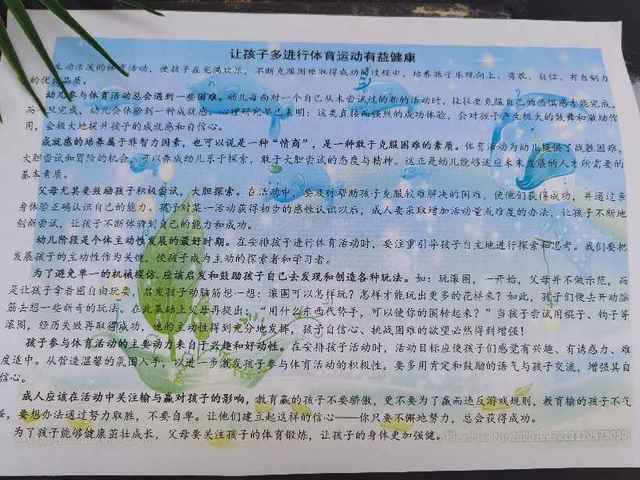 让孩子多进行体育运动有益健康
生动活泼的体育活动，使孩子在充满欢乐、不断克服困难取得成功的过程中，培养孩子乐观向上、勇敢、自信、有自制力
的优良品质。
幼儿参与体育活动总会遇到一些困难。幼儿每面对一个自己从未尝试过的新的活动时，往往要克服自己的恐惧感才能完成，
完成，幼儿会体验到一种成就感，心理研究早已表明：这类直接而强烈的成功体验，会对孩子产生极大的鼓舞和激励作
用，会极大地提升孩子的成就感和自信心。
成就感的培养属于非智力因素，也可以说是一种“情商”，是一种敢于克服困难的素质。体育活动为幼儿提供了战胜困难、
大胆尝试和冒险的机会，可以养成幼儿乐于探索，敢于大胆尝试的态度与精神。这正是幼儿能够适应未来发展的人才所需要的
基本素质。
父母尤其要鼓励孩子积极尝试，大胆探索。在活动中，要及时帮助孩子克服较难解决的困难，使他们获得成功，并通过亲
身体验正确认识自己的能力。孩子对某一活动获得初步的感性认识以后，成人要采取增加活动量或难度的办法，让孩子不断地
创新尝试，让孩子不断体验到自己的能力和成功。
幼儿阶段是个体主动性发展的最好时期。在安排孩子进行体育活动时，要注重引导孩子自主地进行探索和思考。我们要把
发展孩子的主动性作为关键，使孩子成为主动的探索者和学习者。
为了避免单一的机械模仿，应该启发和鼓励孩子自己去发现和创造各种玩法。如：玩滚圈，一开始，父母并不做示范，而
是让孩子拿着圈自由玩耍，启发孩子动脑筋想一想：滚圈可以怎样玩？怎样才能玩出更多的花样来？如此，孩子们便去开动脑
筋去想一些新奇的玩法，在此基础上父母再提出，“用什么东西代替手，可以使你的圈转起来？”当孩子尝试用棍子、钩子等
滚圈，经历失败再取得成功，他的主动性得到充分地发挥，孩子自信心、挑战困难的欲望必然得到增强！
孩子参与体育活动的主要动力来自于兴趣和好动性。在安排孩子活动时，活动目标应使孩子们感觉有兴趣、有诱惑力、难
度适中。从营造温馨的氛围入手，以进一步激发孩子参与体育活动的积极性。要多用肯定和鼓励的语气与孩子交流，增强其自
信心。
成人应该在活动中关注输与赢对孩子的影响，教育赢的孩子不要骄傲，更不要为了赢而违反游戏规则，教育输的孩子不气
馁，要想办法通过努力取胜，不要自卑。让他们建立起这样的信心——你只要不懈地努力，总会获得成功。
为了孩子能够健康茁壮成长，父母要关注孩子的体育锻炼，让孩子的身体更加强健。